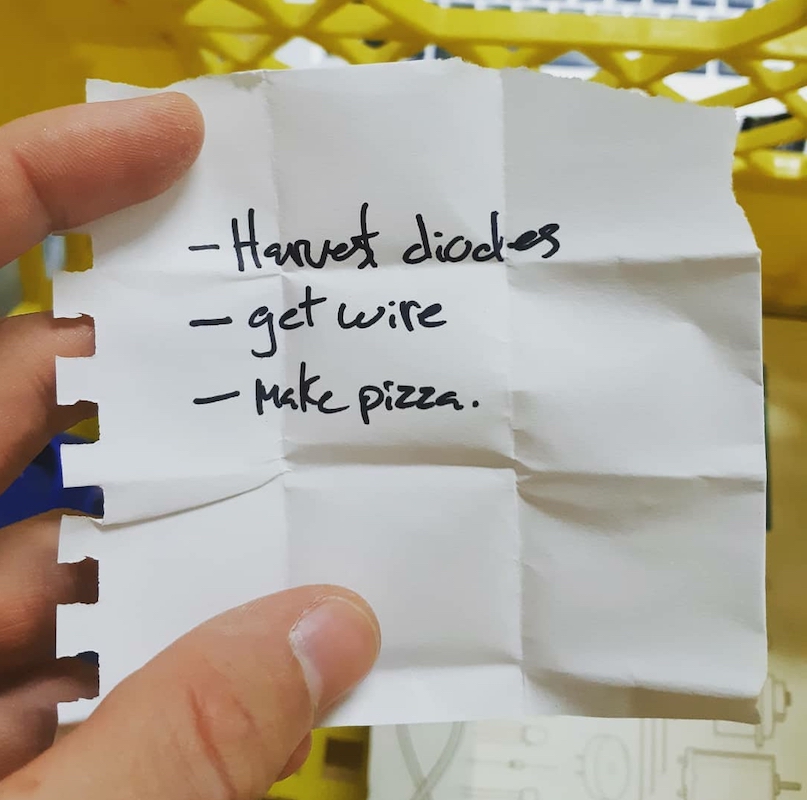 - Harvest diodes
- get wire
- Make pizza.